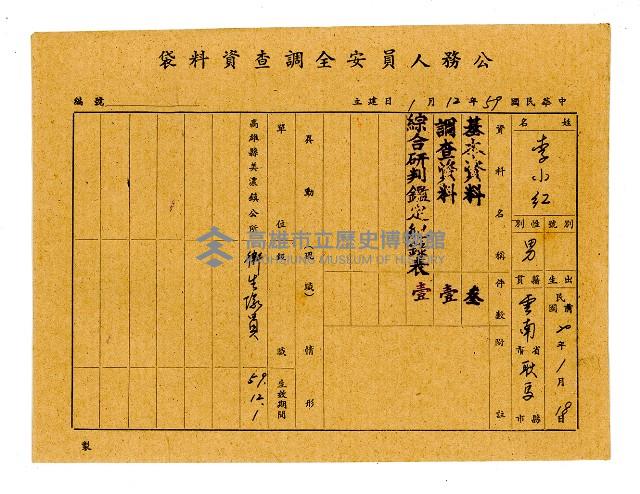 公務人員安全調查資料袋
編號
中華民國59年12月1日建立
姓名
李小紅
別號 性別
男
出生 籍貫
民國前 年1月18日
雲南省 耿馬縣市
資料名稱 件數 附註
基本資料 叁
調查資料 壹
綜合研判鑑定紀錄表 壹
異動(現職)情形
單位 職 級 職 生效期間
高雄縣美濃鎮公所 衛生隊員 59.12.1
高雄市立歷史博物館
KAOHSIUNG MUSEUM OF HISTORY
製